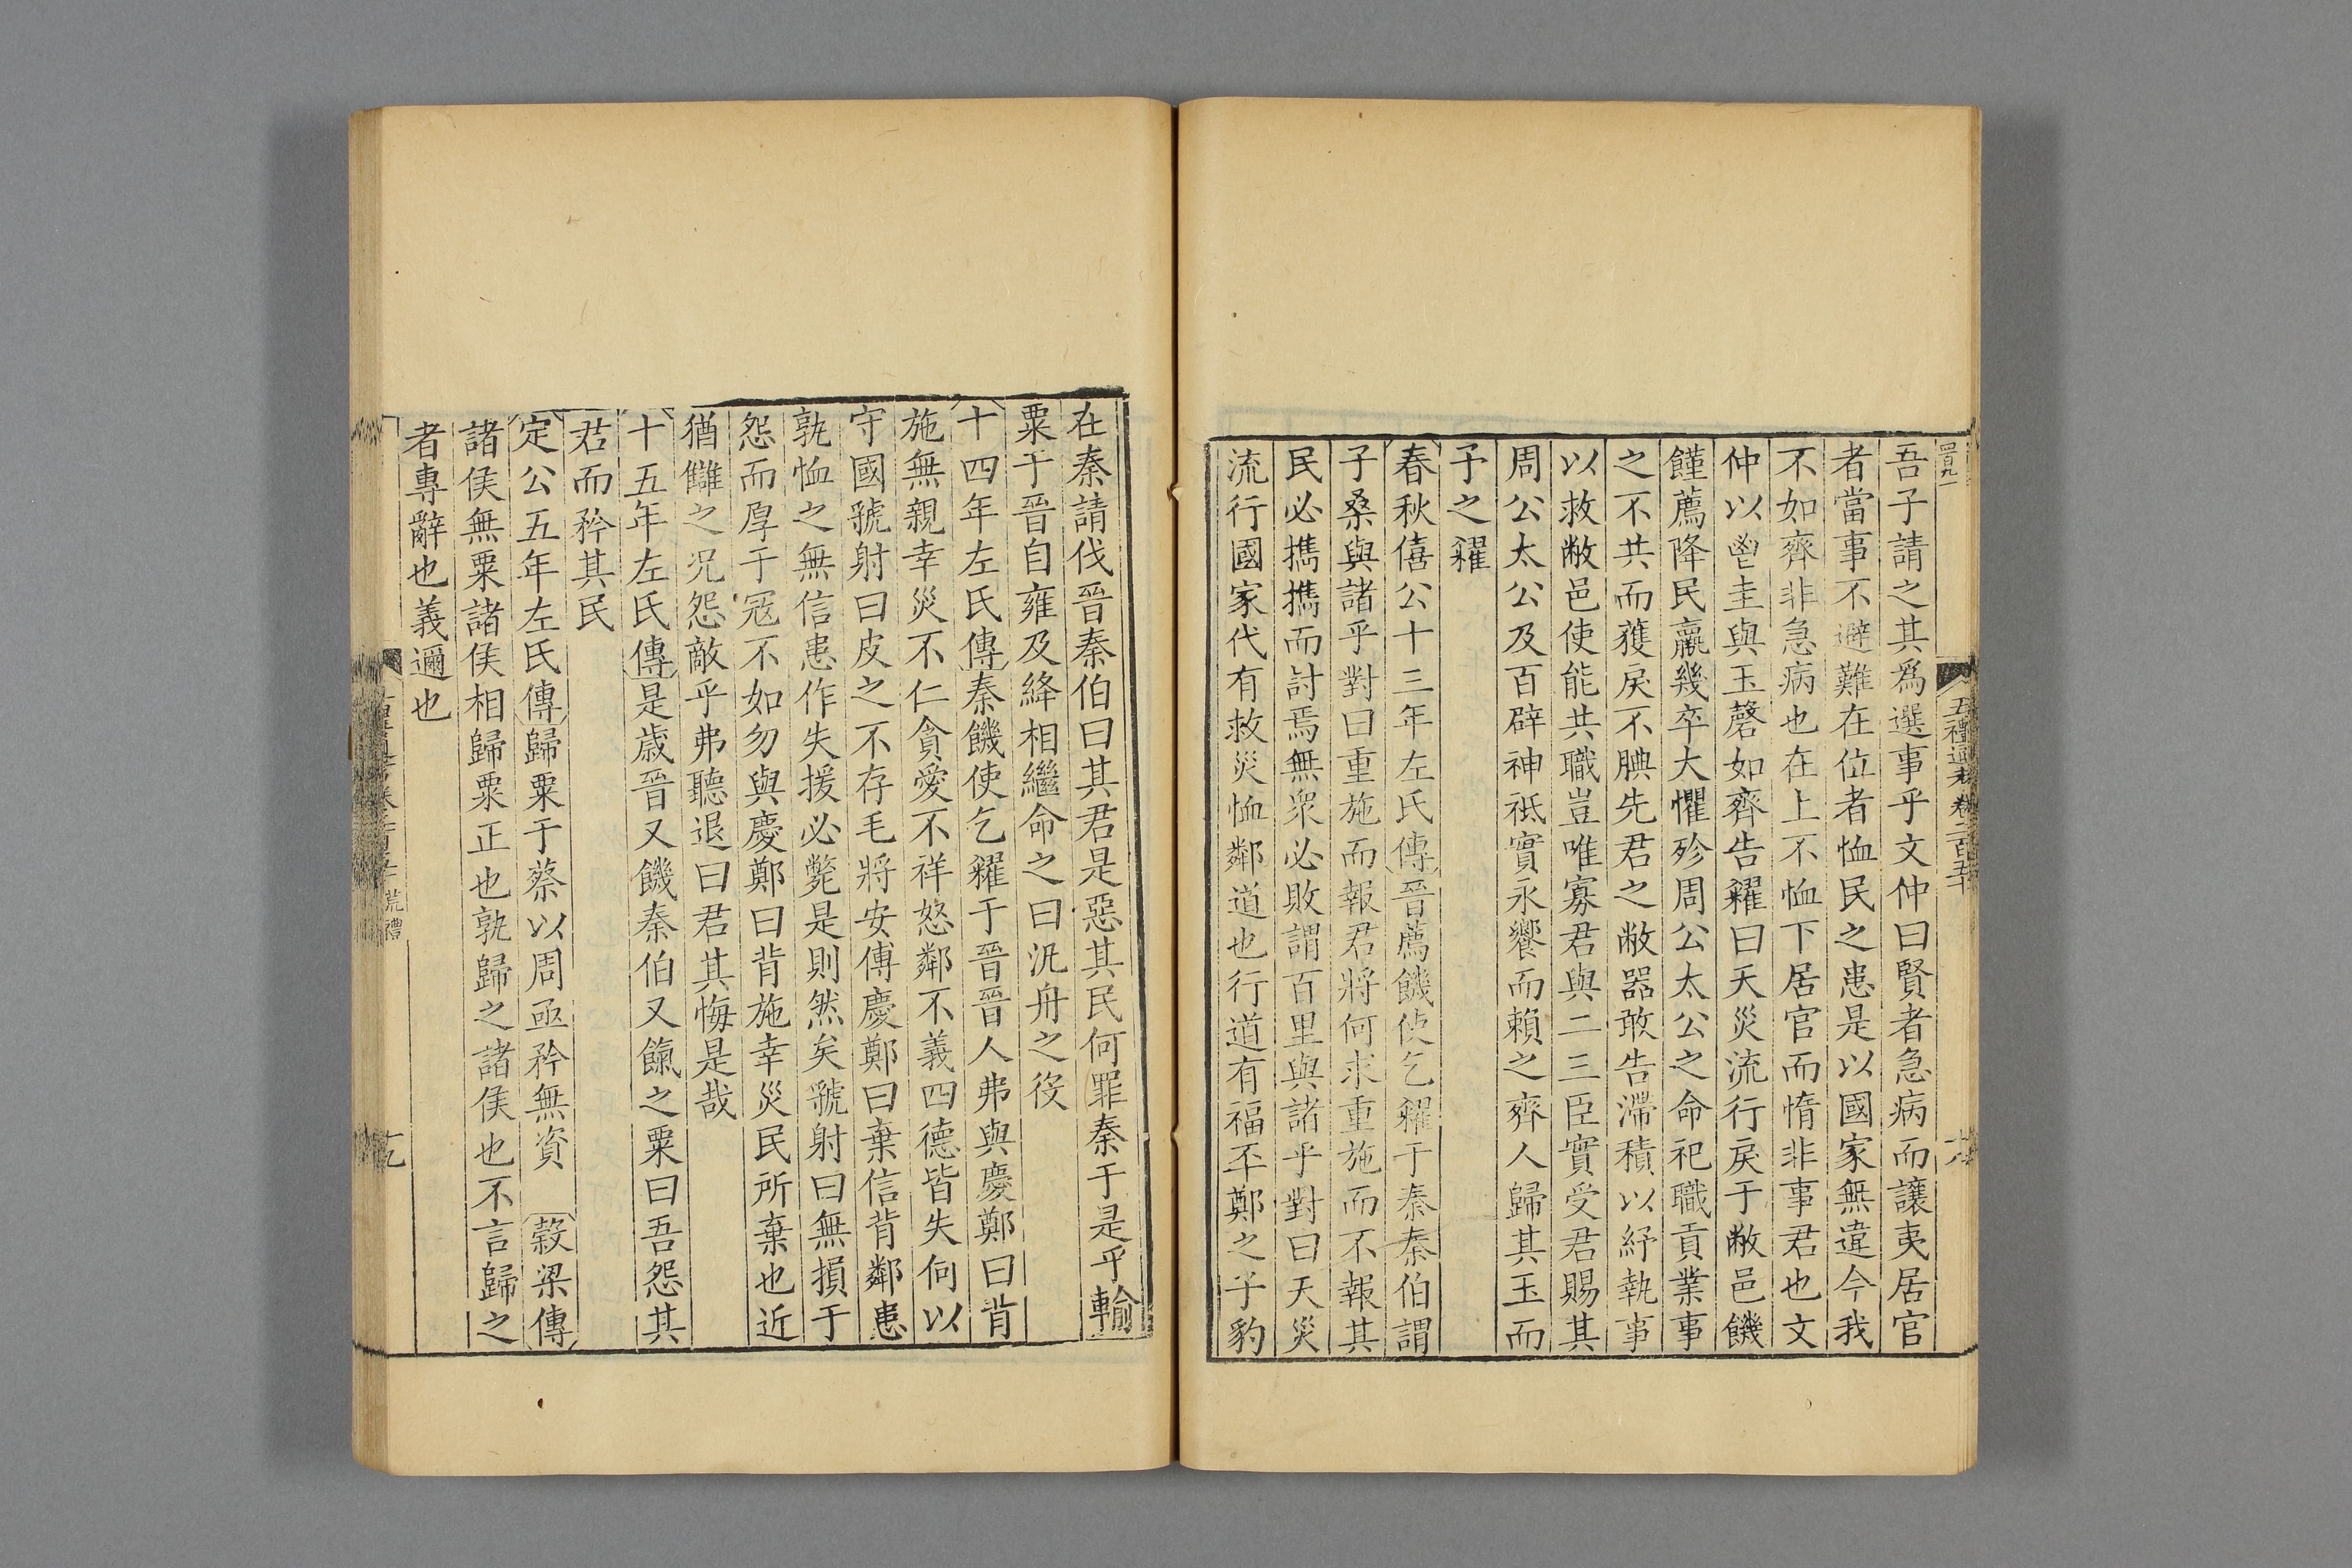 吾子請之其爲選事乎文仲曰賢者急病而讓夷居官
者當事不避難在位者恤民之患是以國家無違今我
不如齊非急病也在上不恤下居官而惰非事君也文
仲以鬯圭與玉磬如齊告糴曰天災流行戾于敝邑饑
饉薦降民羸幾卒大懼殄周公太公之命祀職貢業事
之不共而獲戾不腆先君之敝器敢告滯積以紓執事
以救敝邑使能共職豈唯寡君與二三臣實受君賜其
周公太公及百辟神祗實永饗而賴之齊人歸其玉而
予之糴
春秋僖公十三年左氏傳晉薦饑使乞糴于秦秦伯謂
子桑與諸乎對曰重施而報君將何求重施而不報其
民必攜攜而討焉無衆必敗謂百里與諸乎對曰天災
流行國家代有救災恤鄰道也行道有福丕鄭之子豹
在秦請伐晉秦伯曰其君是惡其民何罪秦于是乎輸
粟于晉自雍及絳相繼命之曰汎舟之役
十四年左氏傳秦饑使乞糴于晉晉人弗與慶鄭曰背
施無親幸災不仁貪愛不祥怒鄰不義四德皆失何以
守國虢射曰皮之不存毛將安傅慶鄭曰棄信背鄰患
孰恤之無信患作失援必斃是則然矣虢射曰無損于
怨而厚于寇不如勿與慶鄭曰背施幸災民所棄也近
猶讎之況怨敵乎弗聽退曰君其悔是哉
十五年左氏傳是歲晉又饑秦伯又餼之粟曰吾怨其
君而矜其民
定公五年左氏傳歸粟于蔡以周亟矜無資 穀梁傳
諸侯無粟諸侯相歸粟正也孰歸之諸侯也不言歸之
者專辭也義邇也
五禮通考卷二百五十 荒禮